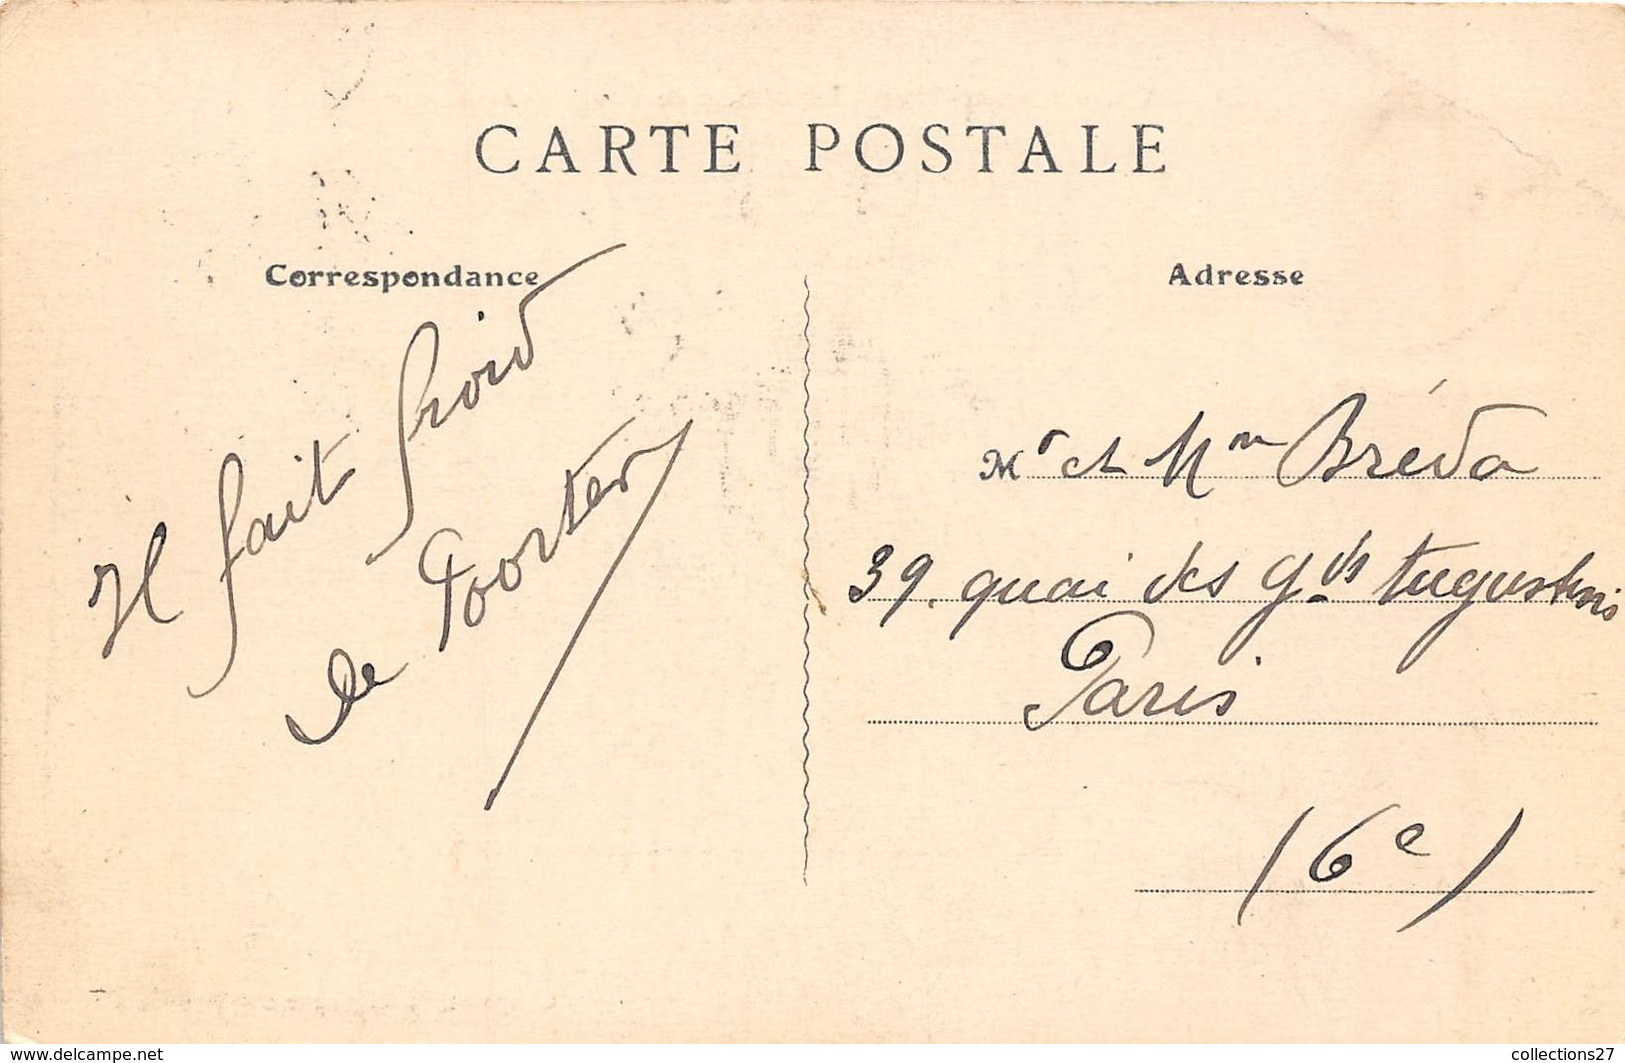 CARTE POSTALE
Correspondance
Il fait froid
de Poorter
Adresse
Mr et Mme Bréda
39. quai des Gds Augustins
Paris
(6e)
www.delcampe.net
collections27